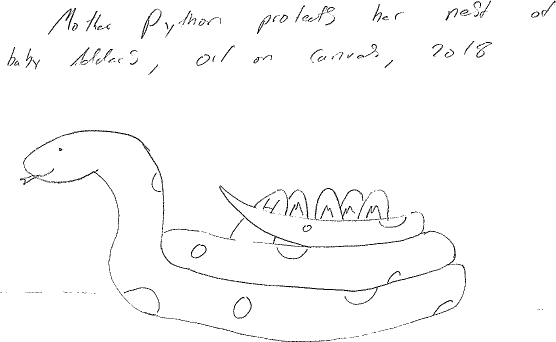 Mother Python protects her nest of
baby Adders, oil on canvas, 2018
H M M M M